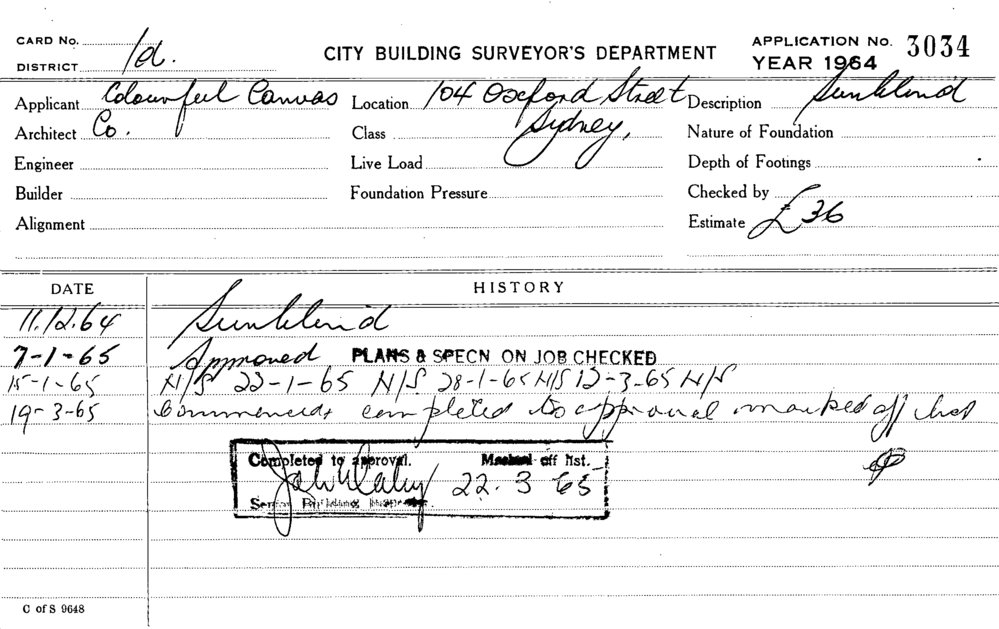 CARD No.
DISTRICT 1d.
CITY BUILDING SURVEYOR'S DEPARTMENT
APPLICATION No. 3034
YEAR 1964
Applicant Colourful Canvas Location 104 Oxford Street Description Sunblind
Architect Co. Class Sydney, Nature of Foundation
Engineer Live Load Depth of Footings
Builder Foundation Pressure Checked by
Alignment Estimate £36
DATE HISTORY
11.12.64 Sunblind
7-1-65 Approved PLANS & SPECN ON JOB CHECKED
15-1-65 N/S 22-1-65 N/S 28-1-65 N/S 12-3-65 N/S
19-3-65 Commenced & completed to approval marked off list
Completed to approval. Marked off list.
22.3 65
Senior Building Inspector.
C of S 9648